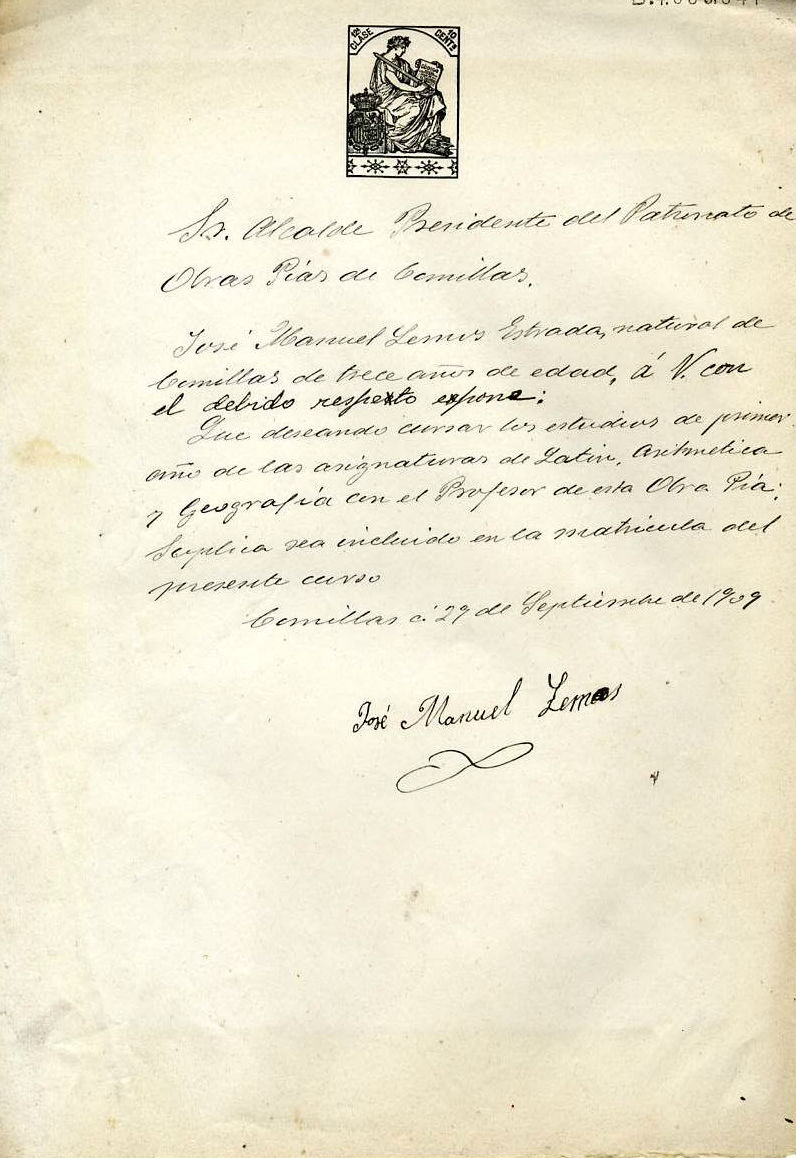 12ª CLASE 10 CENTS
Sr. Alcalde Presidente del Patronato de
Obras Pías de Comillas.
José Manuel Lemos Estrada, natural de
Comillas de trece años de edad, á V. con
el debido respeto expone:
Que deseando cursar los estudios de primer
año de las asignaturas de Latin, Aritmetica
y Geografía con el Profesor de esta Obra Pía;
Suplica sea incluido en la matricula del
presente curso
Comillas á 29 de Septiembre de 1909
José Manuel Lemos